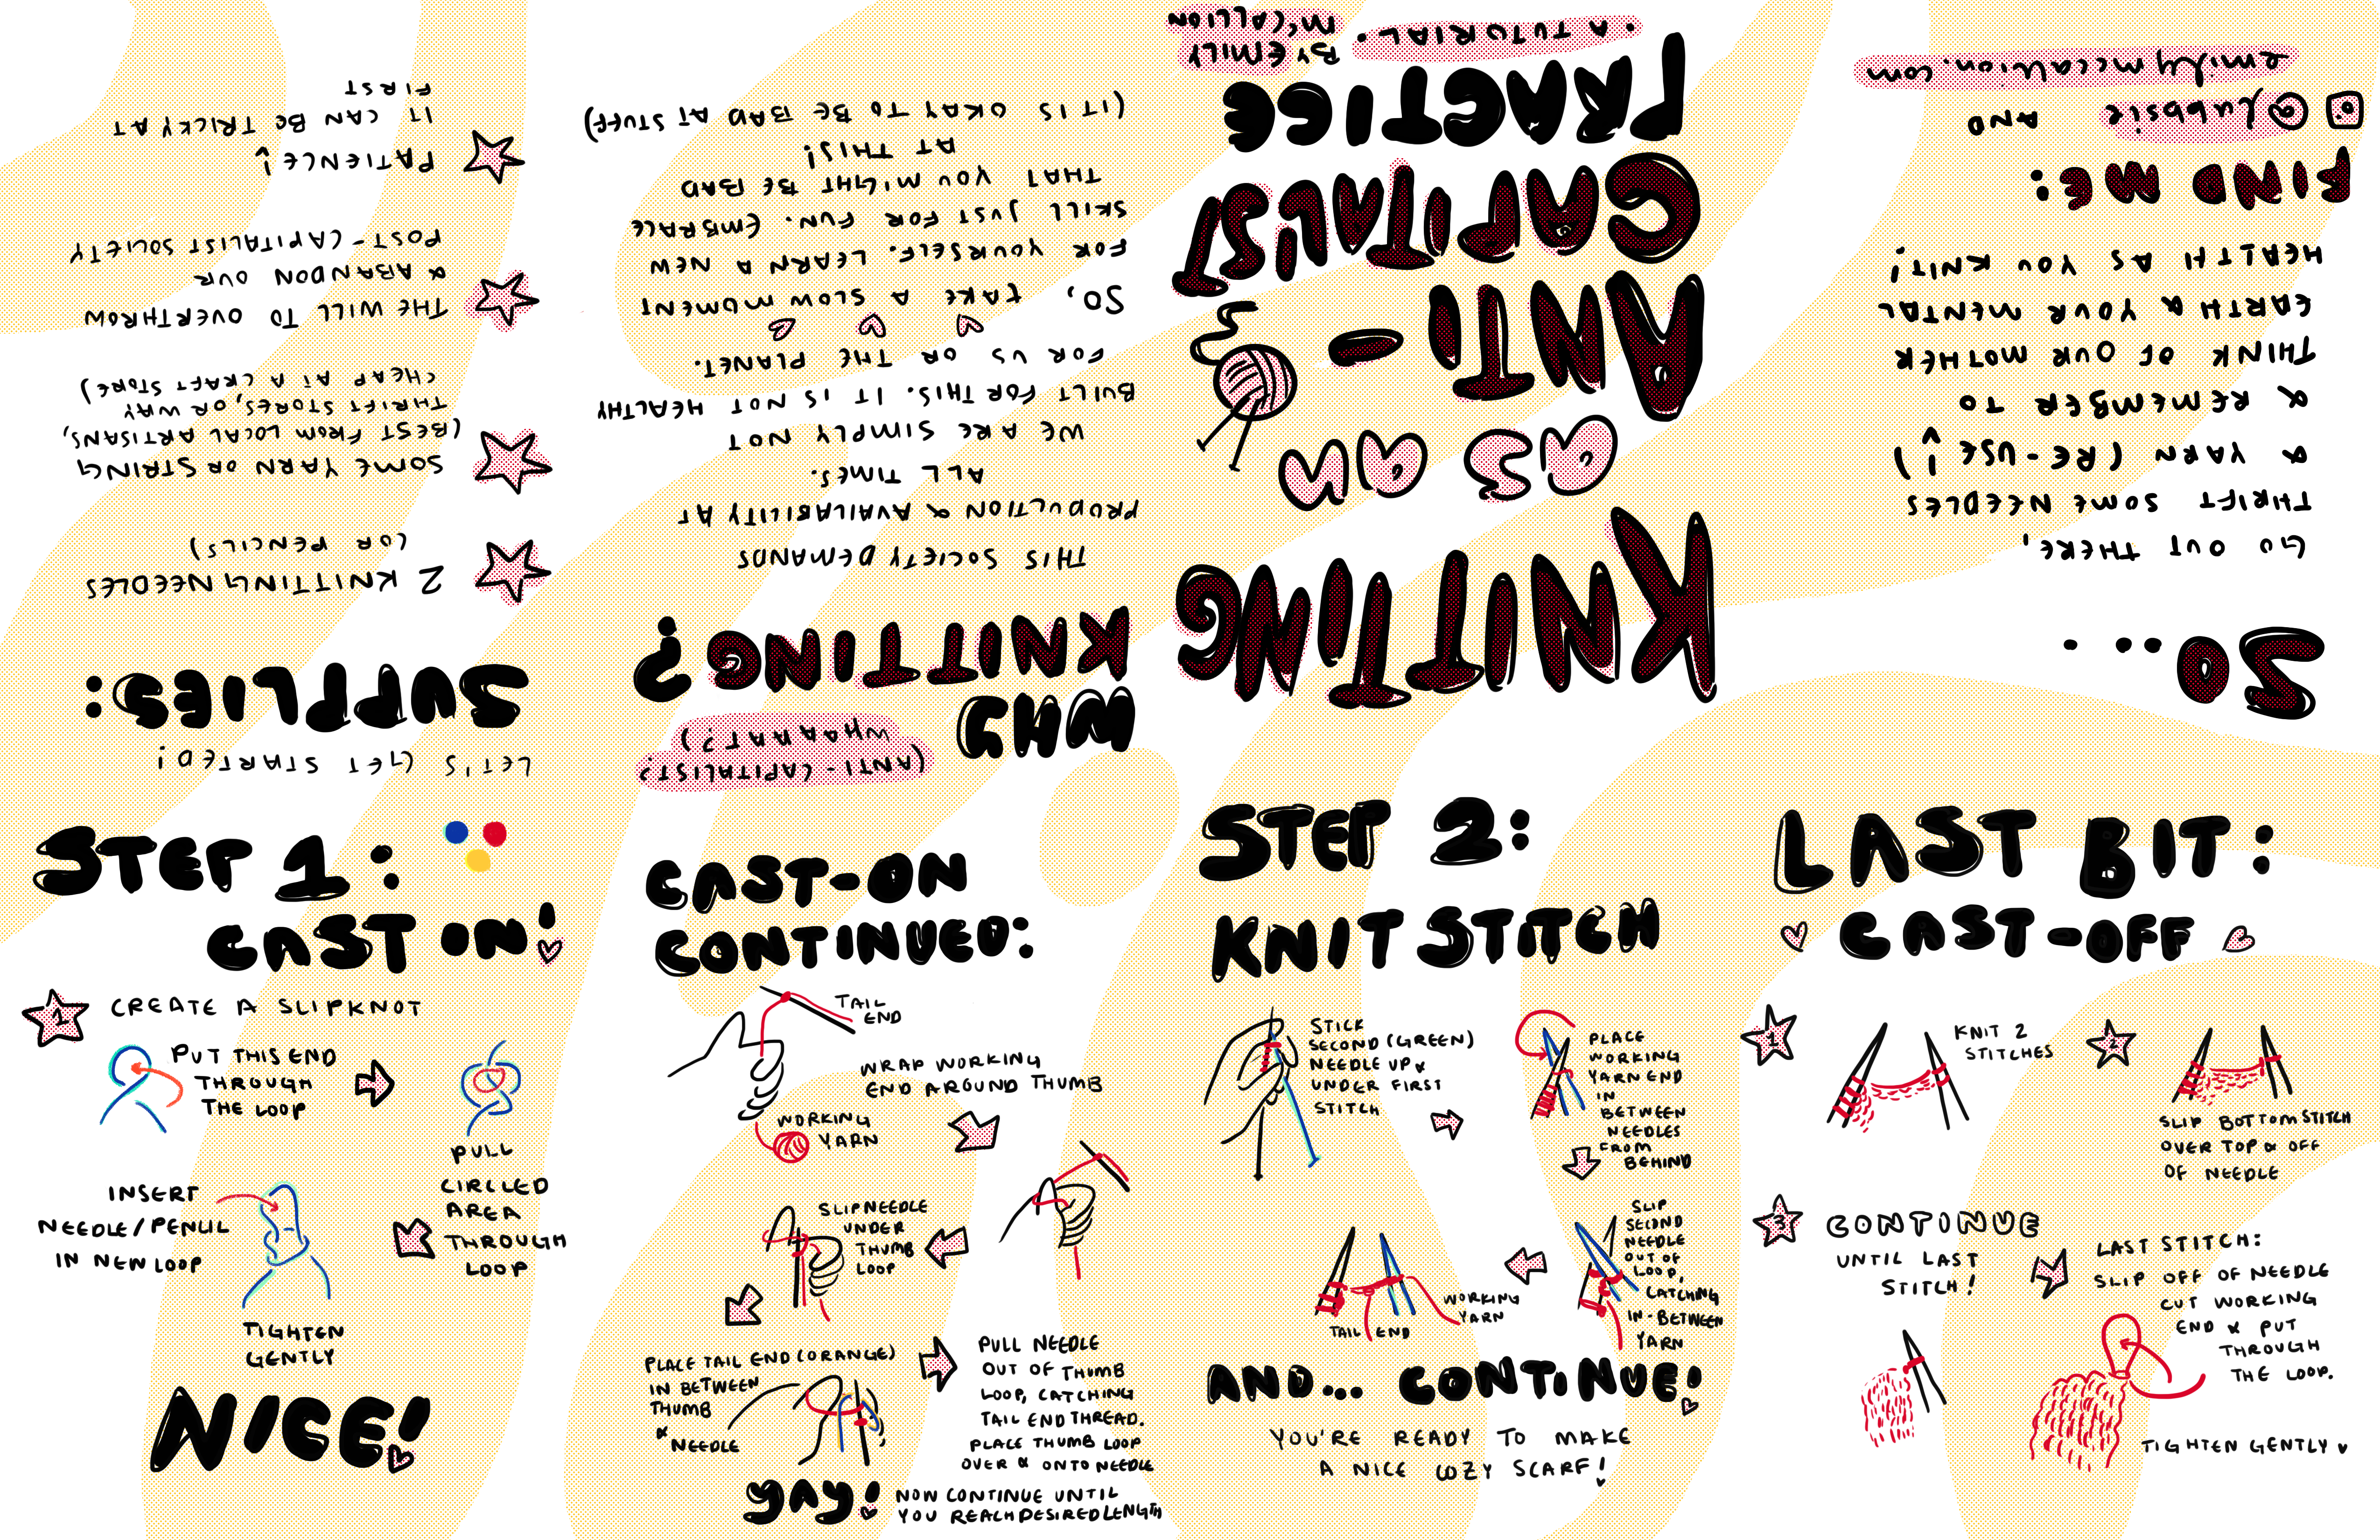 KNITTING
AS AN
ANTI-
CAPITALIST
PRACTICE
• A TUTORIAL •
BY EMILY
McCALLION
(ANTI-CAPITALIST?
WHAAAAT?)
WHY
KNITTING?
THIS SOCIETY DEMANDS
PRODUCTION & AVAILABILITY AT
ALL TIMES.
WE ARE SIMPLY NOT
BUILT FOR THIS. IT IS NOT HEALTHY
FOR US OR THE PLANET.
SO, TAKE A SLOW MOMENT
FOR YOURSELF. LEARN A NEW
SKILL JUST FOR FUN. EMBRACE
THAT YOU MIGHT BE BAD
AT THIS!
(IT IS OKAY TO BE BAD AT STUFF)
LET'S GET STARTED!
SUPPLIES:
2 KNITTING NEEDLES
(OR PENCILS)
SOME YARN OR STRING
(BEST FROM LOCAL ARTISANS,
THRIFT STORES, OR WAY
CHEAP AT A CRAFT STORE)
THE WILL TO OVERTHROW
& ABANDON OUR
POST-CAPITALIST SOCIETY
PATIENCE!
IT CAN BE TRICKY AT
FIRST
STEP 1:
CAST ON!
1
CREATE A SLIPKNOT
PUT THIS END
THROUGH
THE LOOP
PULL
CIRCLED
AREA
THROUGH
LOOP
INSERT
NEEDLE/PENCIL
IN NEW LOOP
TIGHTEN
GENTLY
NICE!
CAST-ON
CONTINUED:
TAIL
END
WRAP WORKING
END AROUND THUMB
WORKING
YARN
SLIP NEEDLE
UNDER
THUMB
LOOP
PLACE TAIL END (ORANGE)
IN BETWEEN
THUMB
&
NEEDLE
PULL NEEDLE
OUT OF THUMB
LOOP, CATCHING
TAIL END THREAD.
PLACE THUMB LOOP
OVER & ONTO NEEDLE
YAY!
NOW CONTINUE UNTIL
YOU REACH DESIRED LENGTH
STEP 2:
KNIT STITCH
STICK
SECOND (GREEN)
NEEDLE UP &
UNDER FIRST
STITCH
PLACE
WORKING
YARN END
IN
BETWEEN
NEEDLES
FROM
BEHIND
SLIP
SECOND
NEEDLE
OUT OF
LOOP,
CATCHING
IN-BETWEEN
YARN
WORKING
YARN
TAIL END
AND... CONTINUE!
YOU'RE READY TO MAKE
A NICE COZY SCARF!
LAST BIT:
CAST-OFF
1
KNIT 2
STITCHES
2
SLIP BOTTOM STITCH
OVER TOP & OFF
OF NEEDLE
3
CONTINUE
UNTIL LAST
STITCH!
LAST STITCH:
SLIP OFF OF NEEDLE
CUT WORKING
END & PUT
THROUGH
THE LOOP.
TIGHTEN GENTLY
SO...
GO OUT THERE,
THRIFT SOME NEEDLES
& YARN (RE-USE!)
& REMEMBER TO
THINK OF OUR MOTHER
EARTH & YOUR MENTAL
HEALTH AS YOU KNIT!
FIND ME:
@lubbsie AND
emilymccallion.com